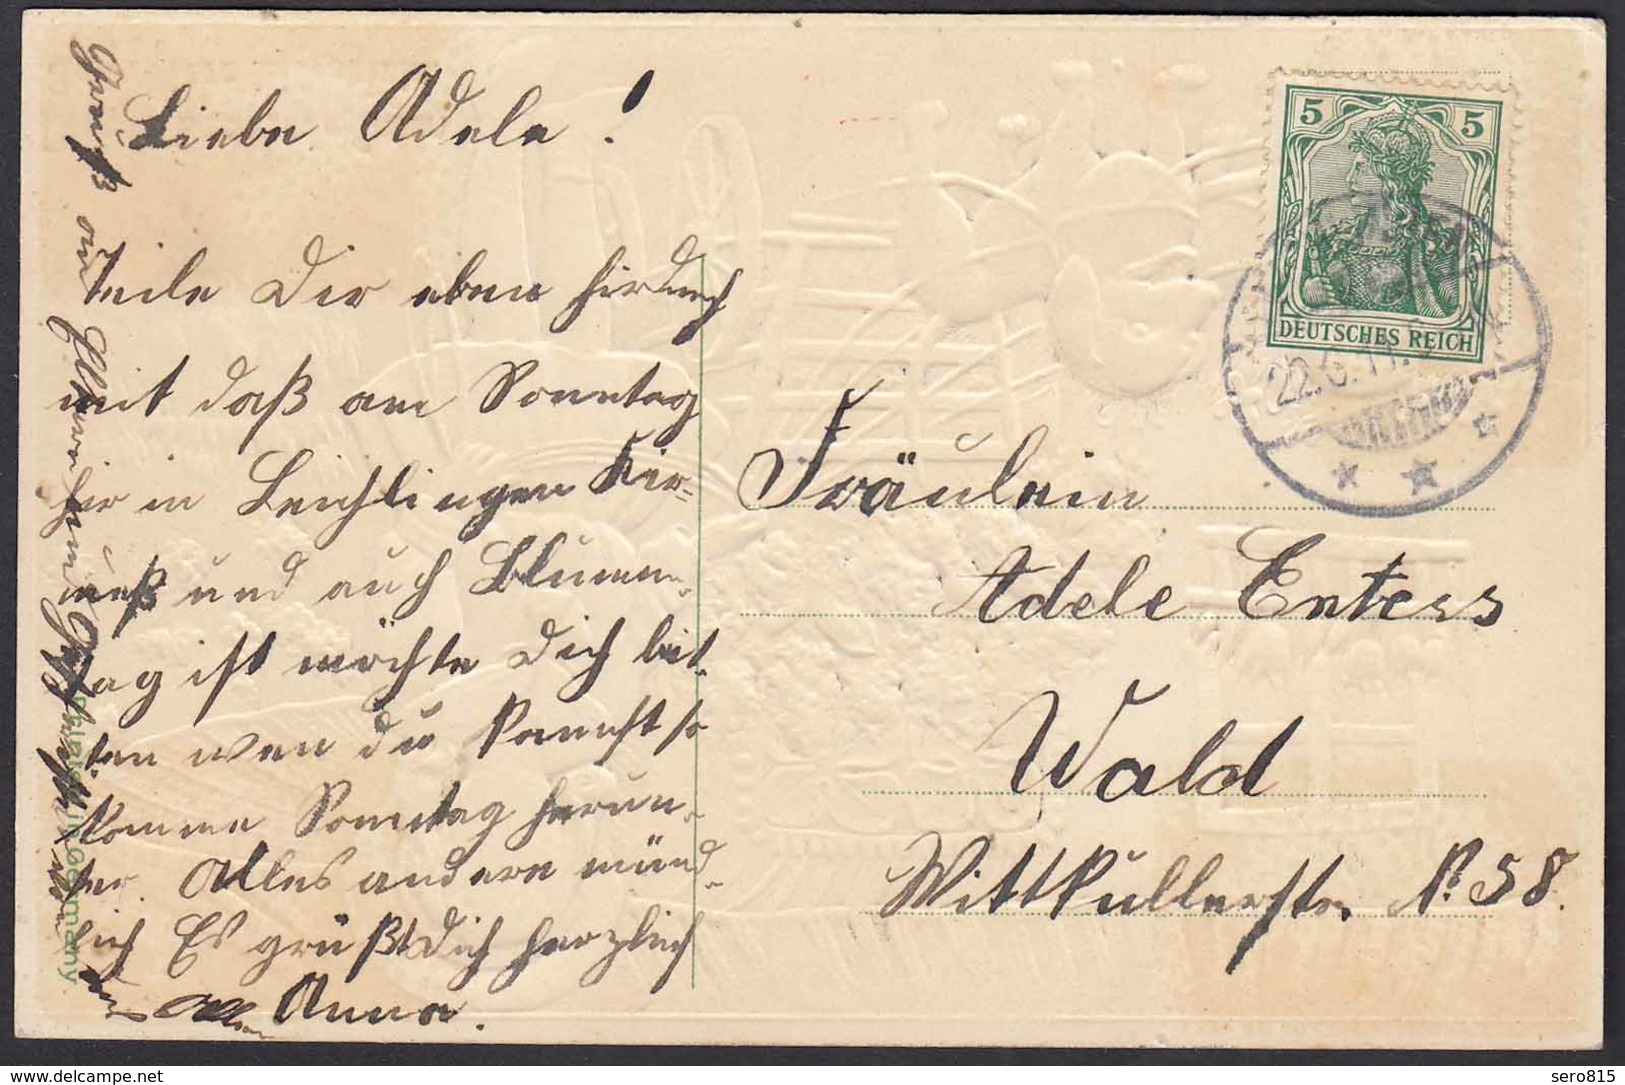 Liebe Adele!
teile Dir eben hirdurch
mit daß am Sonntag
hier in Leichlingen Kir-
meß und auch Blumen-
tag ist möchte Dich bit-
ten wen du kannst so
komme Sonntag herun-
ter. Alles andere münd-
lich Es grüßt Dich herzlich
Anna.
Gruß an Eltern und Geschwister von
uns Allen
Printed in Germany
5 5
DEUTSCHES REICH
22.3.11.
Fräulein
Adele Enterss
Wald
Wittkullerstr. N. 58.
delcampe.net
sero815